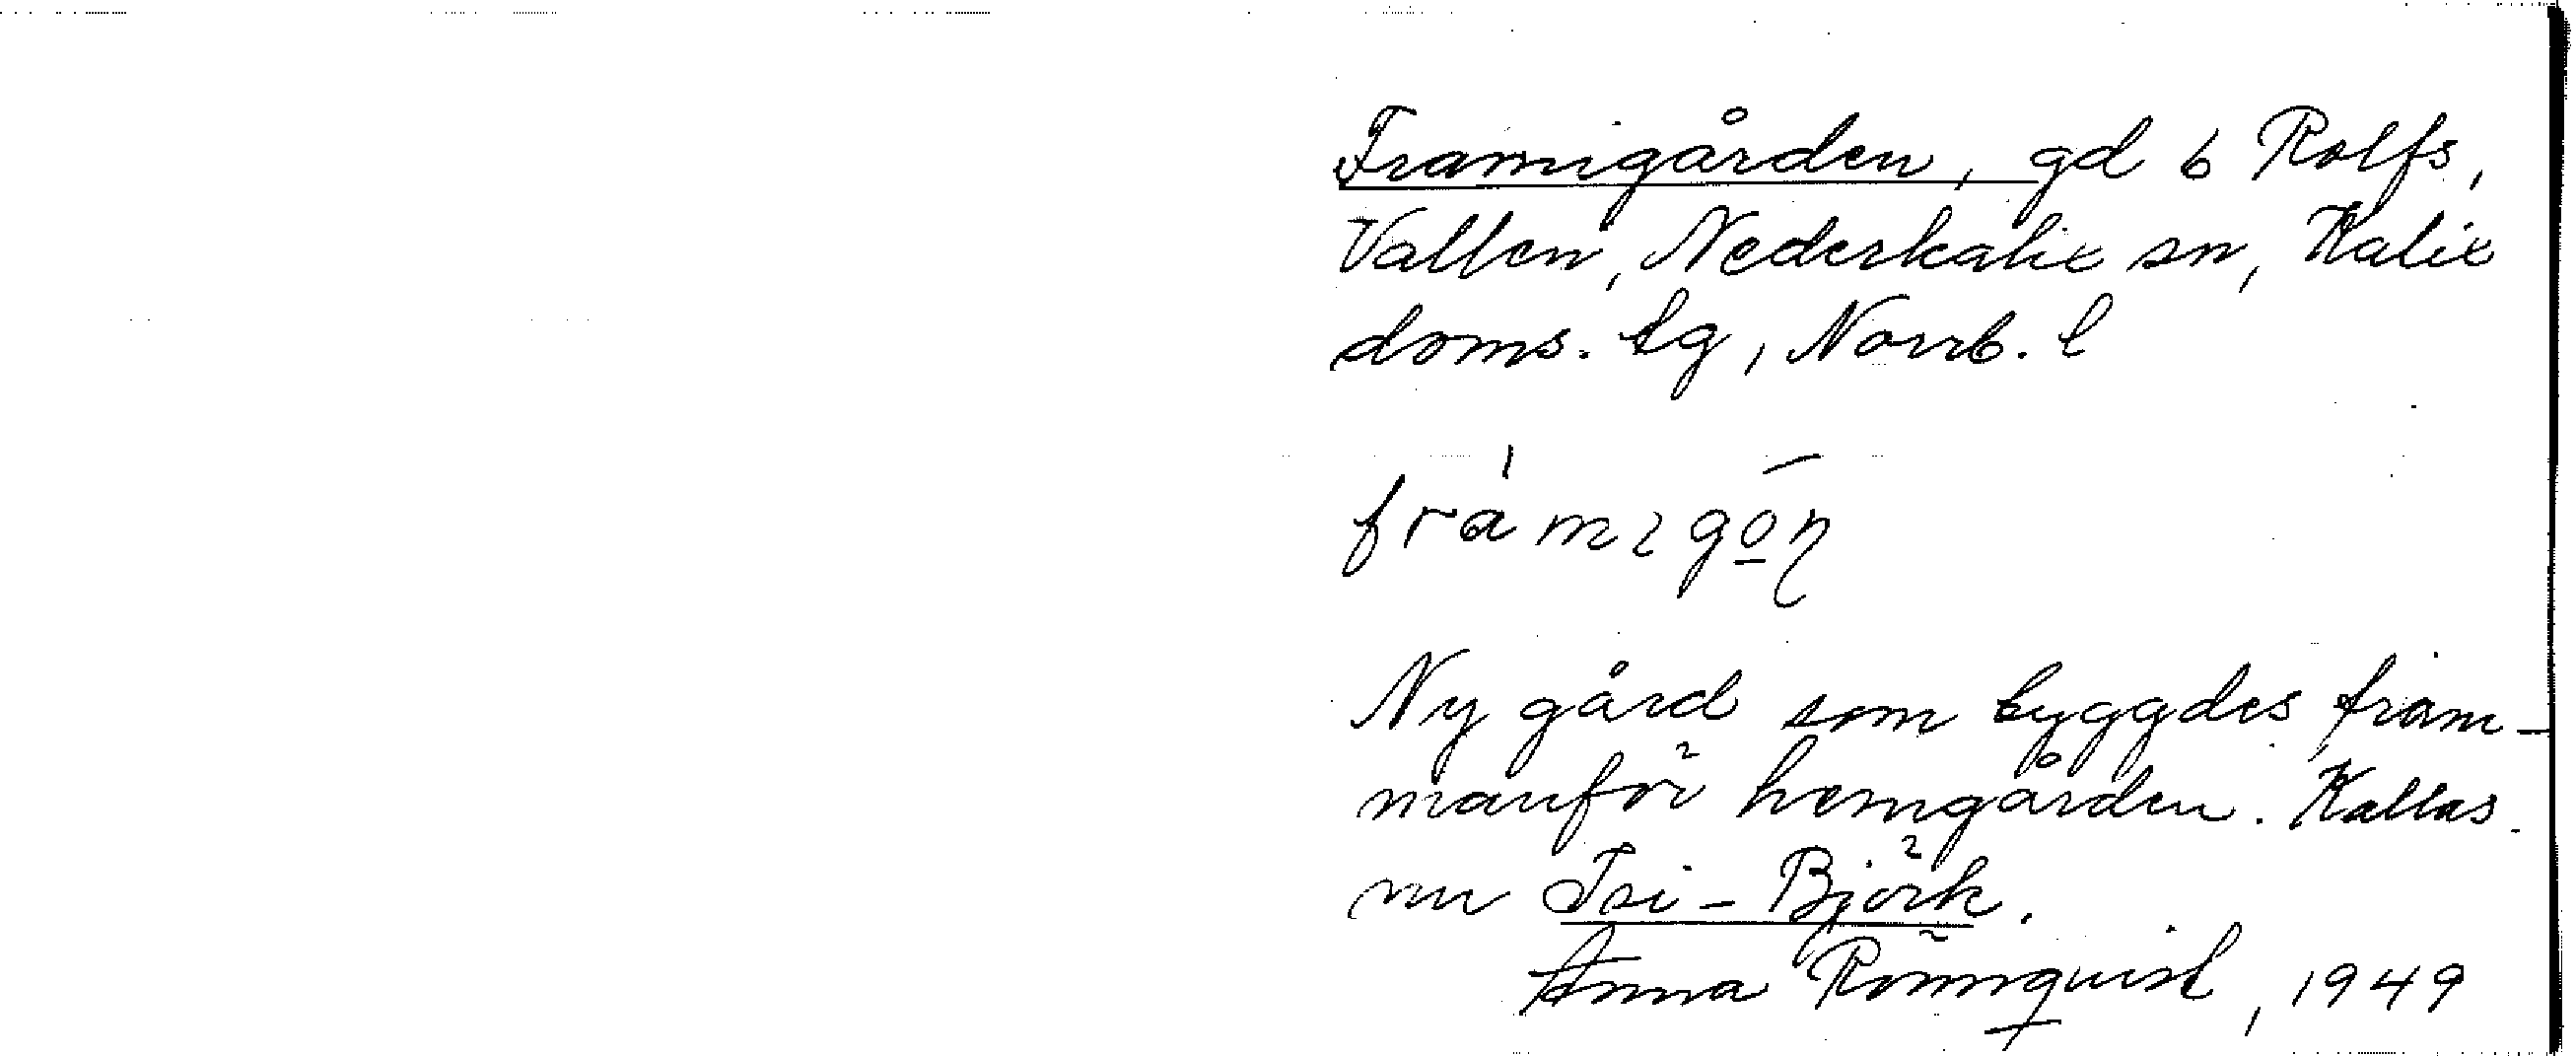 Framigården, gd b Rolfs,
Vallen, Nederkalix sn, Kalix
doms. lg, Norrb. l
Ny gård som byggdes fram-
manför hemgården. Kallas
nu Isi-Björk.
Anna Rönnquist, 1949